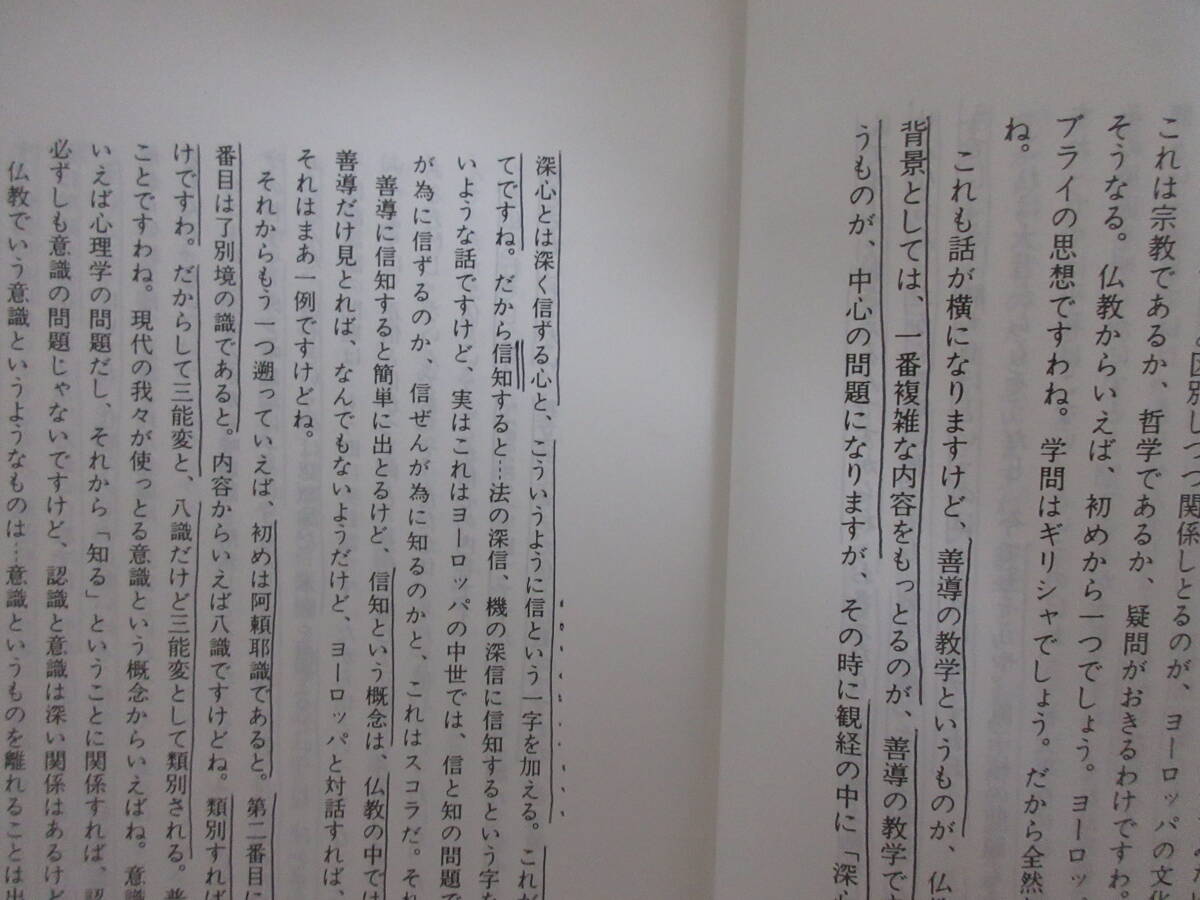 。区別しつつ関係しとるのが、ヨーロッパの文化
これは宗教であるか、哲学であるか、疑問がおきるわけですわ。
そうなる。仏教からいえば、初めから一つでしょう。ヨーロッ
ブライの思想ですわね。学問はギリシャでしょう。だから全然
ね。
これも話が横になりますけど、善導の教学というものが、仏
背景としては、一番複雑な内容をもっとるのが、善導の教学で
うものが、中心の問題になりますが、その時に観経の中に「深
深心とは深く信ずる心と、こういうように信という一字を加える。これが
てですね。だから信知すると…法の深信、機の深信に信知するという字を
いような話ですけど、実はこれはヨーロッパの中世では、信と知の問題で
が為に信ずるのか、信ぜんが為に知るのかと、これはスコラだ。それ
善導に信知すると簡単に出とるけど、信知という概念は、仏教の中では
善導だけ見とれば、なんでもないようだけど、ヨーロッパと対話すれば、
それはまあ一例ですけどね。
それからもう一つ遡っていえば、初めは阿頼耶識であると。第二番目に
番目は了別境の識であると。内容からいえば八識ですけどね。類別すれば
けですわ。だからして三能変と、八識だけど三能変として類別される。普
ことですわね。現代の我々が使っとる意識という概念からいえばね。意識
いえば心理学の問題だし、それから「知る」ということに関係すれば、認
必ずしも意識の問題じゃないですけど、認識と意識は深い関係はあるけど
仏教でいう意識というようなものは…意識というものを離れることは出